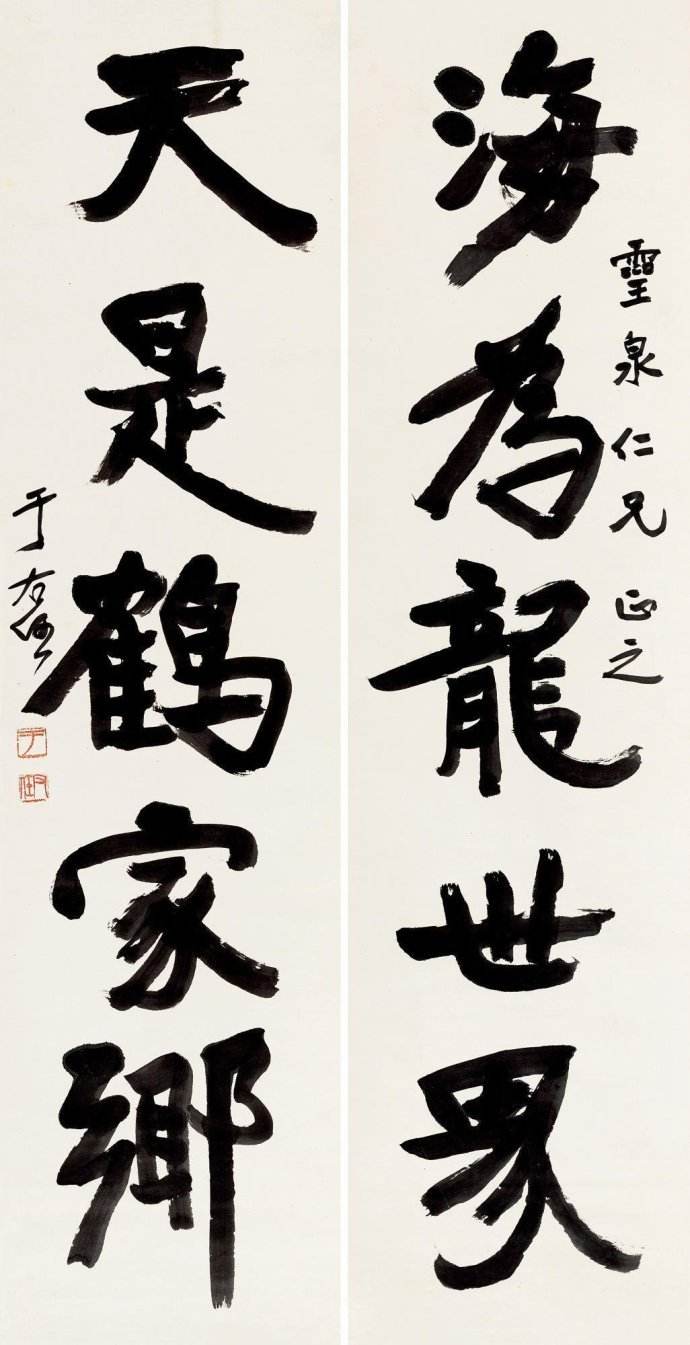 海為龍世界
霛泉仁兄 正之
天是鶴家鄉
于右任